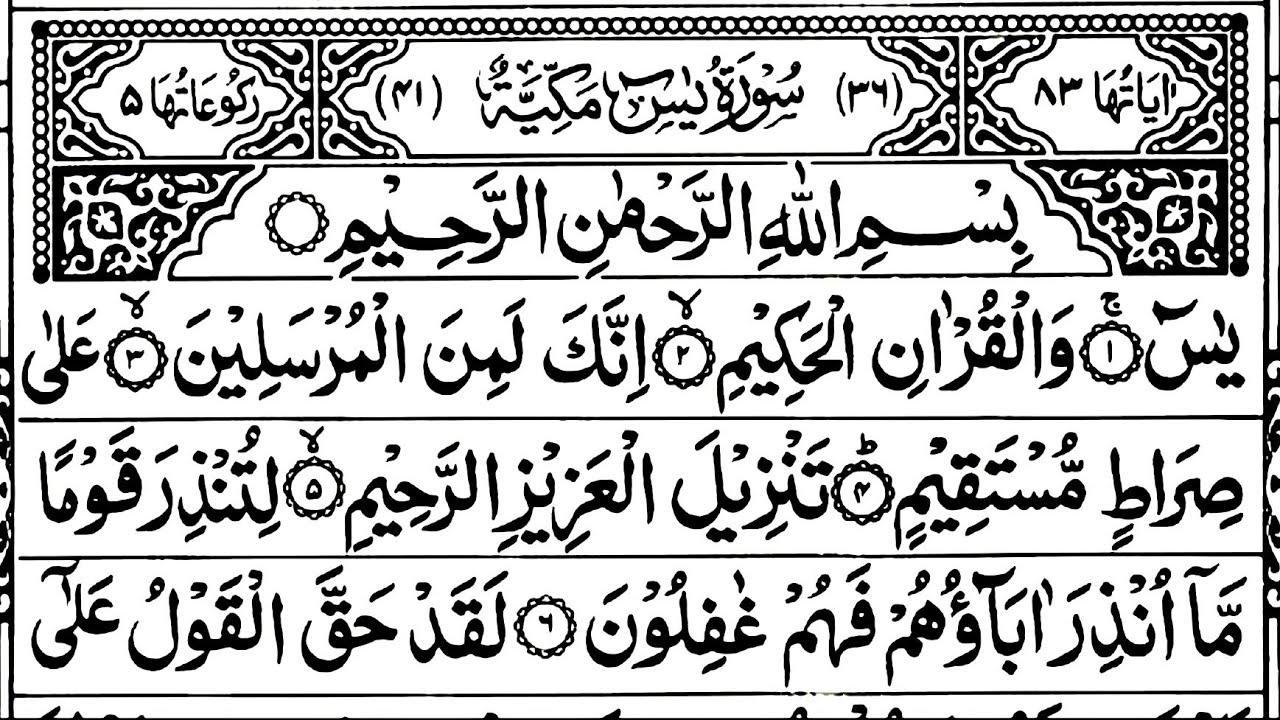 اٰيَاتُهَا ٨٣ (٣٦) سُوْرَةُ يٰسٓ مَكِّيَّةٌ (٤١) رُكُوْعَاتُهَا ۵
بِسْمِ اللّٰهِ الرَّحْمٰنِ الرَّحِيْمِ
يٰسٓ ۚ‏ ﴿۱﴾ وَالْقُرْاٰنِ الْحَكِيْمِ ۙ‏ ﴿۲﴾ اِنَّكَ لَمِنَ الْمُرْسَلِيْنَ ۙ‏ ﴿۳﴾ عَلٰى
صِرَاطٍ مُّسْتَقِيْمٍ ؕ‏ ﴿۴﴾ تَنْزِيْلَ الْعَزِيْزِ الرَّحِيْمِ ۙ‏ ﴿۵﴾ لِتُنْذِرَ قَوْمًا
مَّاۤ اُنْذِرَ اٰبَآؤُهُمْ فَهُمْ غٰفِلُوْنَ ﴿۶﴾ لَقَدْ حَقَّ الْقَوْلُ عَلٰٓى